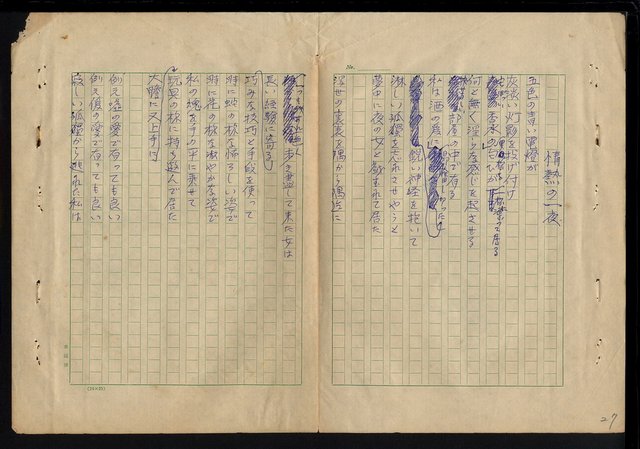 情熱の一夜
五色の青い電燈が
灰淡い灯影を投げ付け
香水の匂ひが
何と無く淫りな感じを起させる
部屋の中である
私は酒の
鋭い神経を抱いて
淋しい孤獨を忘れさせやうと
夢中に夜の女と戯むれて居た
浮世の裏裏を隅から隅迄に
歩き盡して来た女は
長い経験に富み
巧みな技巧と手段を使って
時に蛇の様な恐ろしい姿で
時に花の様な淑やかな姿で
私の魂を手の平に乗せて
玩具の様に持ち遊んで居た
大膽に又上手に
例え嘘の愛で有っても良い
例え仮の愛で有っても良い
寂しい孤獨から逃れた私は
No.
27